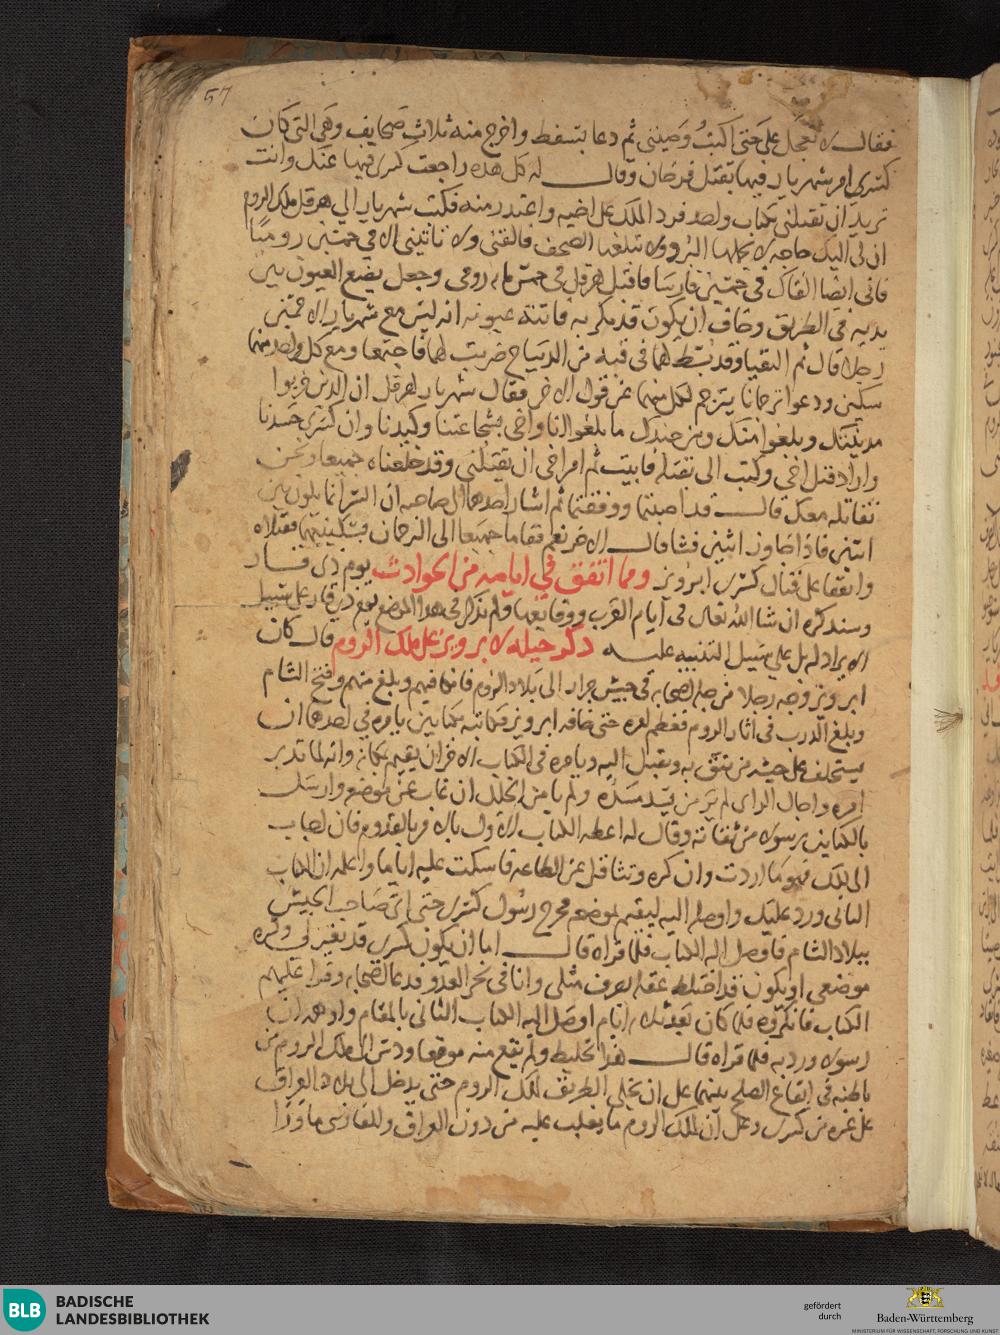 57
فقال لا تعجل على حتى اكتب وصيتى ثم دعا بسفط واخرج منه ثلاث صحايف وهى التى كان
كسرى امر شهريار فيها بقتل فرخان وقال له كل هذه راجعت كسرى فيها عنك وانت
تريد ان تقتلنى بكتاب واحد فرد الملك على اخيه واعتذر منه فكتب شهريار الى هرقل ملك الروم
ان لى اليك حاجه لا تحملها البرد ولا تبلغها الصحف فالقنى ولا تاتينى الا فى خمسين روميا
فانى ايضا القاك فى خمسين فارسيا فاقبل هرقل فى خمس مايه رومى وجعل يضع العيون بين
يديه فى الطريق وخاف ان يكون قد مكر به فاتته عيونه انه ليس مع شهريار الا خمسين
رجلا قال ثم التقيا وقد بسط لهما فى قبه من الديباج ضربت لهما فاجتمعا ومع كل واحد منهما
سكين ودعوا ترجمانا يترجم لكل منهما عن قول الاخر فقال شهريار لهرقل ان الذين خربوا
مدينتك وبلغوا منك ومن جندك ما بلغوا انا واخى بشجاعتنا وكيدنا وان كسرى حسدنا
واراد قتل اخى وكتب الى بقتله فابيت ثم امر اخى ان يقتلنى وقد خلعناه جميعا ونحن
نقاتله معك قال قد اصبتما ووفقتما ثم اشار احدهما الى صاحبه ان السر انما يكون بين
اثنين فاذا جاوز اثنين فشا قال الاخر نعم فقاما جميعا الى الترجمان بسكينيهما فقتلاه
واتفقا على قتال كسرى ابرويز ومما اتفق فى ايامه من الحوادث يوم ذى قار
وسنذكره ان شا الله تعالى فى ايام العرب ووقايعها ولم نذكر فى هذا الموضع يوم ذى قار على سبيل
الايراد له بل على سبيل التنبيه عليه ذكر حيله لابرويز على ملك الروم قال كان
ابرويز وجه رجلا من جله اصحابه فى جيش جرار الى بلاد الروم فانكا فيهم وبلغ منهم وافتتح الشام
وبلغ الدرب فى اثار الروم فعظم امره حتى خافه ابرويز فكاتبه بكتابين يامره فى احدهما ان
يستخلف على جيشه من يثق به ويقبل اليه ويامره فى الكتاب الاخر ان يقيم بمكانه وانه لما تدبر
امره واجال الراى لم ير من يسد مسده ولم يامن الخلل ان غاب عن موضعه وارسل
بالكتابين رسولا من ثقاته وقال له اعطه الكتاب الاول بالامر بالقدوم فان اجاب
الى ذلك فهو ما اردت وان كره وتثاقل عن الطاعه فاسكت عليه اياما واعلمه ان الكتاب
الثانى ورد عليك واوصله اليه ليقيم بموضعه فخرج رسول كسرى حتى اتى صاحب الجيش
ببلاد الشام فاوصل اليه الكتاب فلما قراه قال اما ان يكون كسرى قد تغير لى وكره
موضعى او يكون قد اختلط عقله بصرف مثلى وانا فى نحر العدو فدعا اصحابه وقرا عليهم
الكتاب فانكروه فلما كان بعد ثلاثه ايام اوصل اليه الكتاب الثانى بالمقام واوهمه ان
رسولا ورد به فلما قراه قال هذا تخليط ولم يقع منه موقعا ودس الى ملك الروم من
باطنه فى ايقاع الصلح بينهما على ان يخلى الطريق لملك الروم حتى يدخل الى بلاد العراق
على غره من كسرى وعلى ان لملك الروم ما يغلب عليه من دون العراق وللفارسى ما ورا
BLB BADISCHE LANDESBIBLIOTHEK
gefördert durch
Baden-Württemberg
MINISTERIUM FÜR WISSENSCHAFT, FORSCHUNG UND KUNST